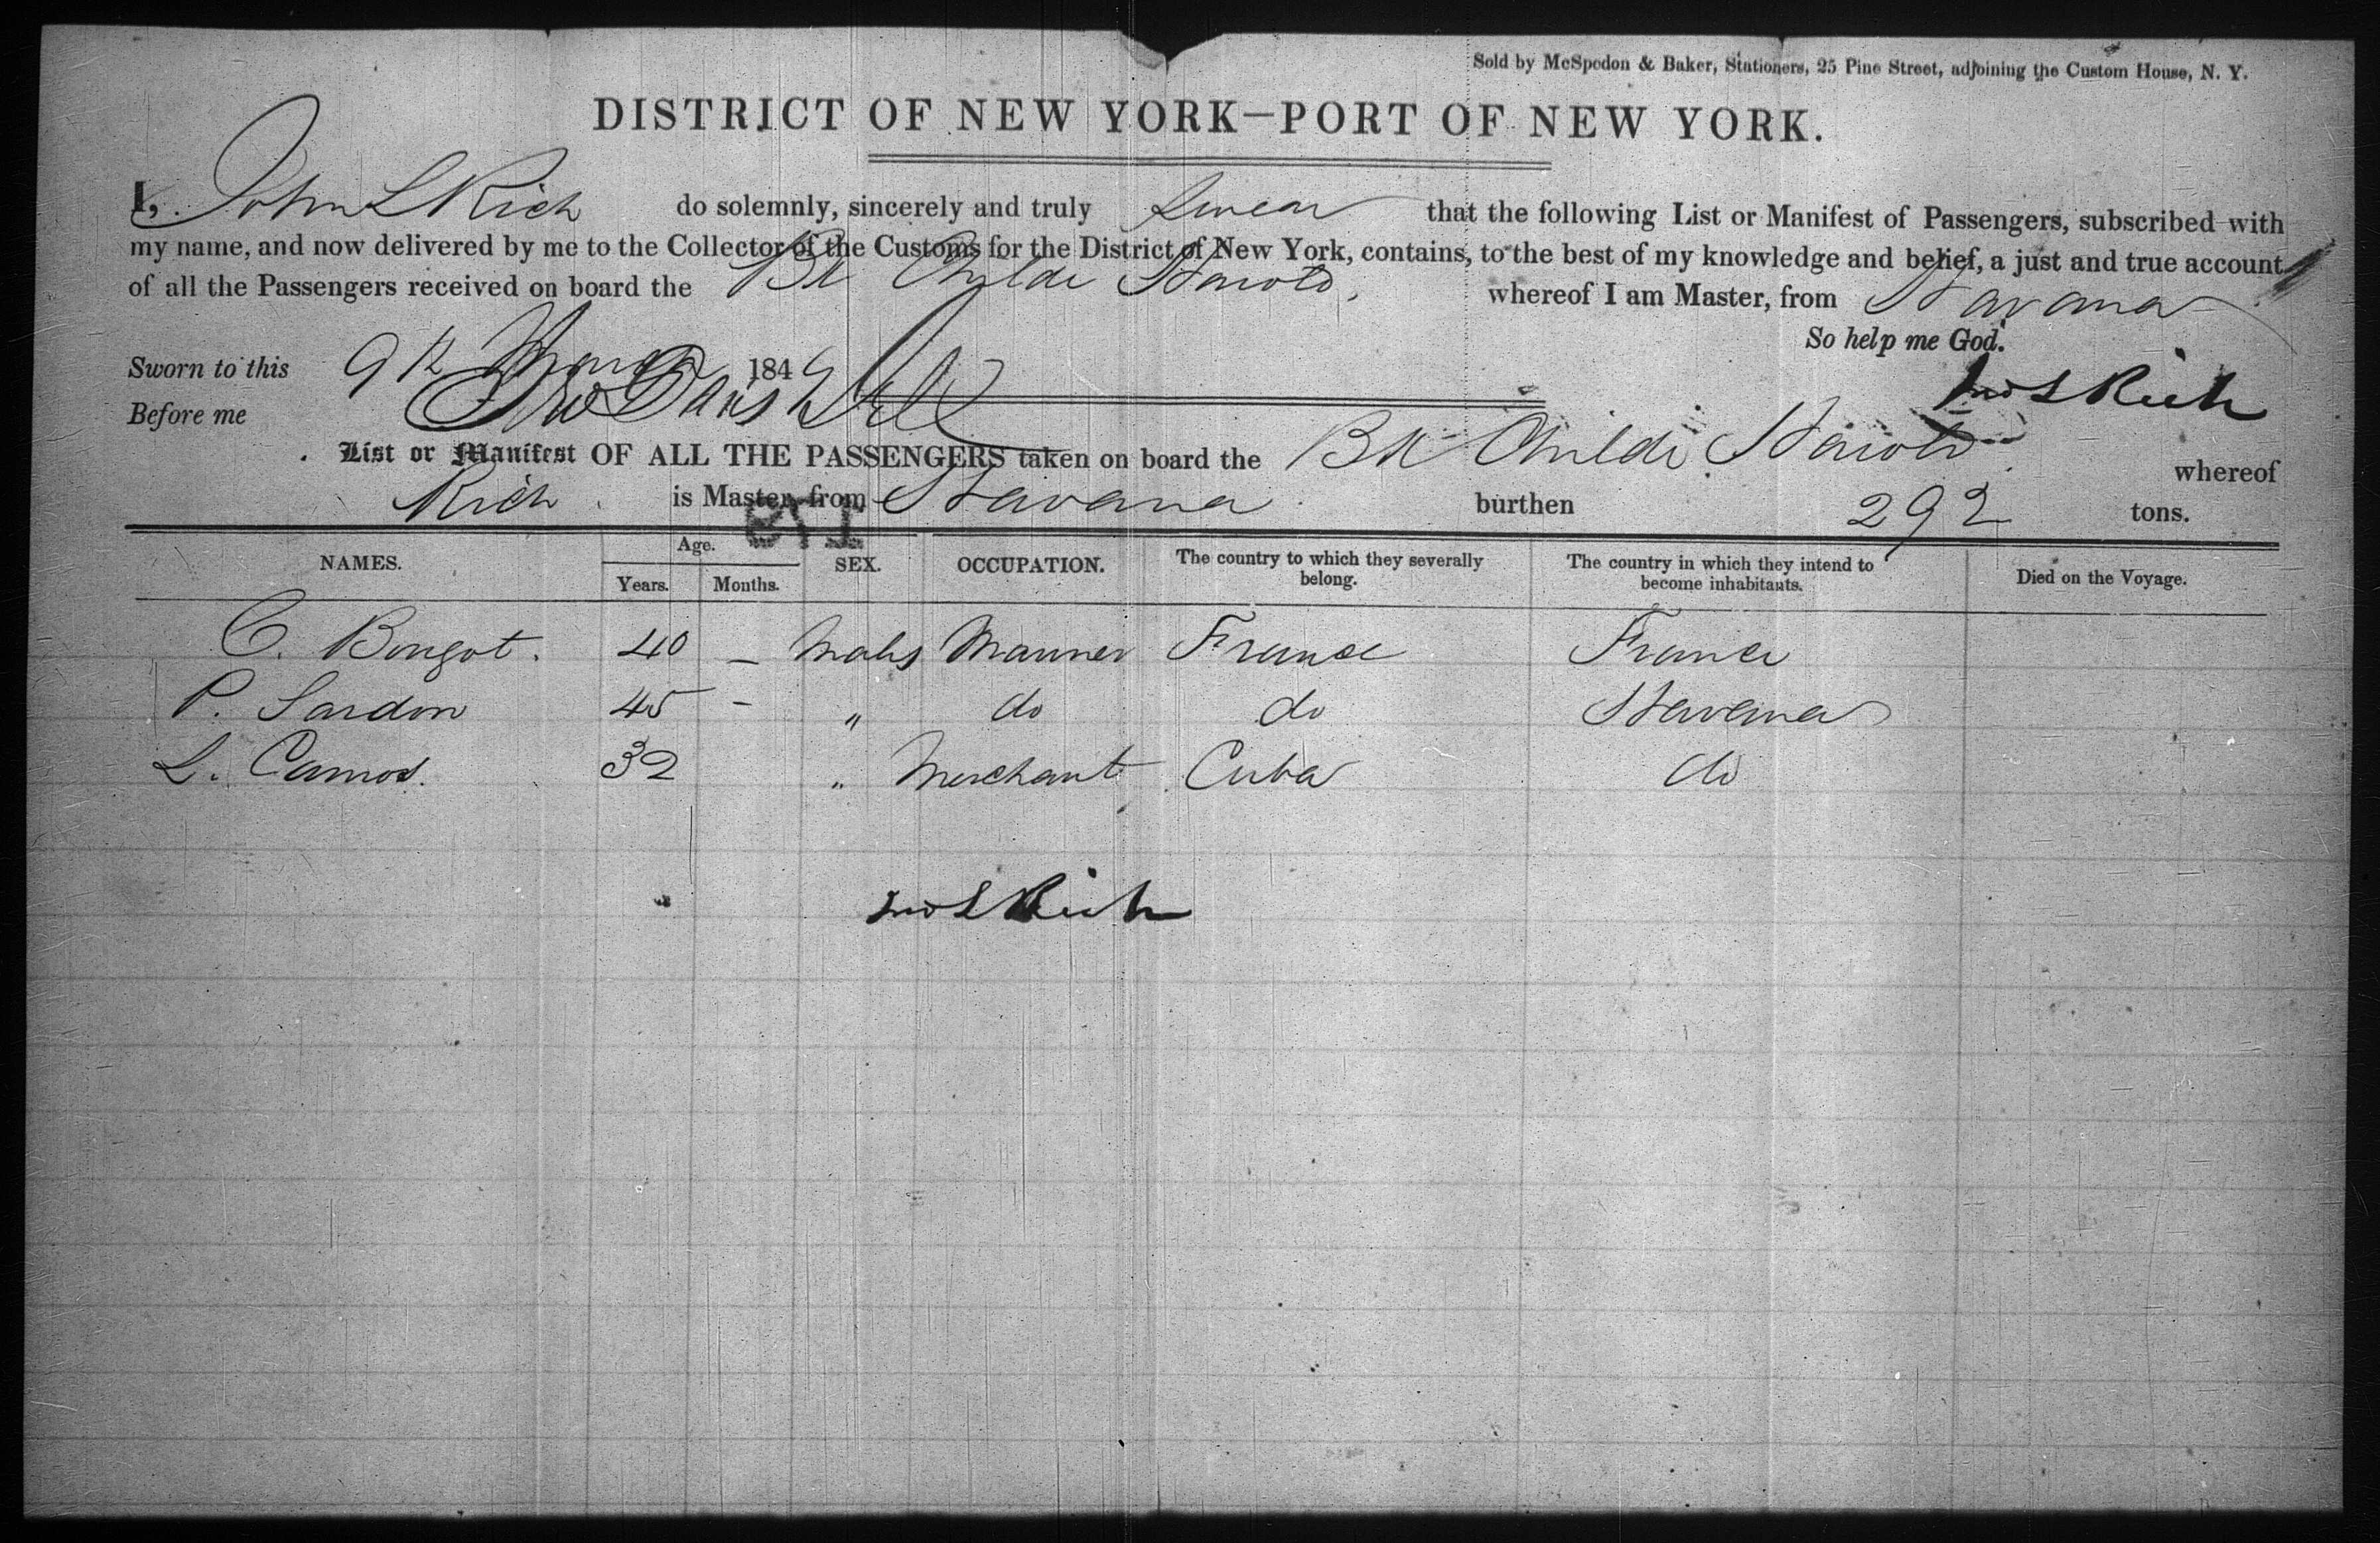 Sold by McSpedon & Baker, Stationers, 25 Pine Street, adjoining the Custom House, N. Y.
DISTRICT OF NEW YORK—PORT OF NEW YORK.
I, John L Rich do solemnly, sincerely and truly swear that the following List or Manifest of Passengers, subscribed with
my name, and now delivered by me to the Collector of the Customs for the District of New York, contains, to the best of my knowledge and belief, a just and true account
of all the Passengers received on board the Bk Childe Harold, whereof I am Master, from Havana
So help me God.
Sworn to this 9 1849
Before me
Jno L Rich
List or Manifest OF ALL THE PASSENGERS taken on board the Bk Childe Harold whereof
Rich is Master, from Havana burthen 292 tons.
NAMES. Age. Years. Months. SEX. OCCUPATION. The country to which they severally belong. The country in which they intend to become inhabitants. Died on the Voyage.
C. Bongot. 40 – Males Mariner France France
P. Sardon 45 – " do do Havana
L. Camos. 32 " Merchant Cuba do
Jno L Rich